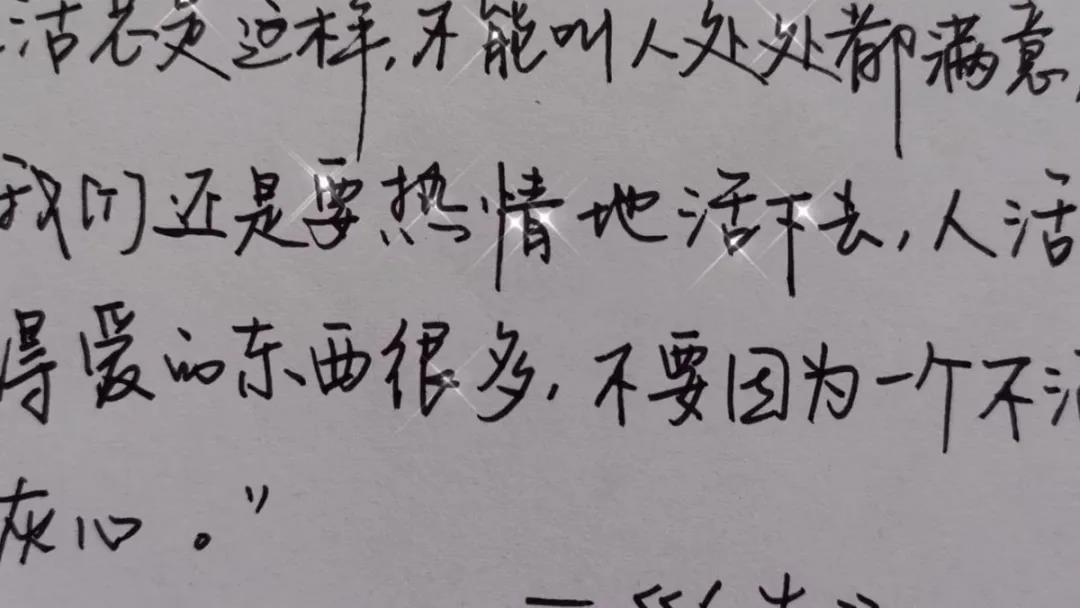 活总是这样,不能叫人处处都满意,
我们还是要热情地活下去,人活
得爱的东西很多,不要因为一个不
灰心。”